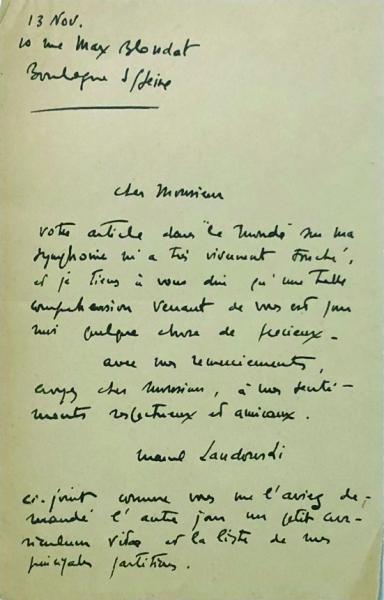 13 Nov.
10 rue Max Blondat
Boulogne s/Seine
cher Monsieur
votre article dans "le Monde" sur ma
symphonie m'a très vivement touché,
et je tiens à vous dire qu'une telle
compréhension venant de vous est pour
moi quelque chose de précieux.
avec mes remerciements,
croyez cher monsieur, à mes senti-
ments respectueux et amicaux.
Marcel Landowski
ci-joint comme vous me l'aviez de-
mandé l'autre jour un petit cur-
riculum vitae et la liste de mes
principales partitions.